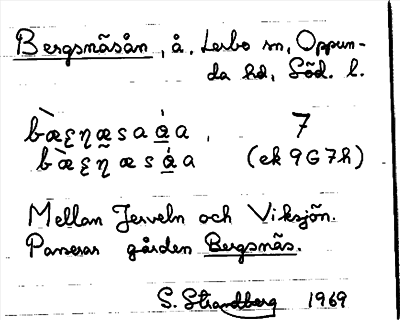 Bergsnäsån, å. Lerbo sn, Oppun-
da hd, Söd. l.
bæ̀ʒŋæsaàa, 7
bæ̀ʒŋæsàa (ek 9G7h)
Mellan Jerveln och Viksjön.
Passerar gården Bergsnäs.
S. Strandberg 1969